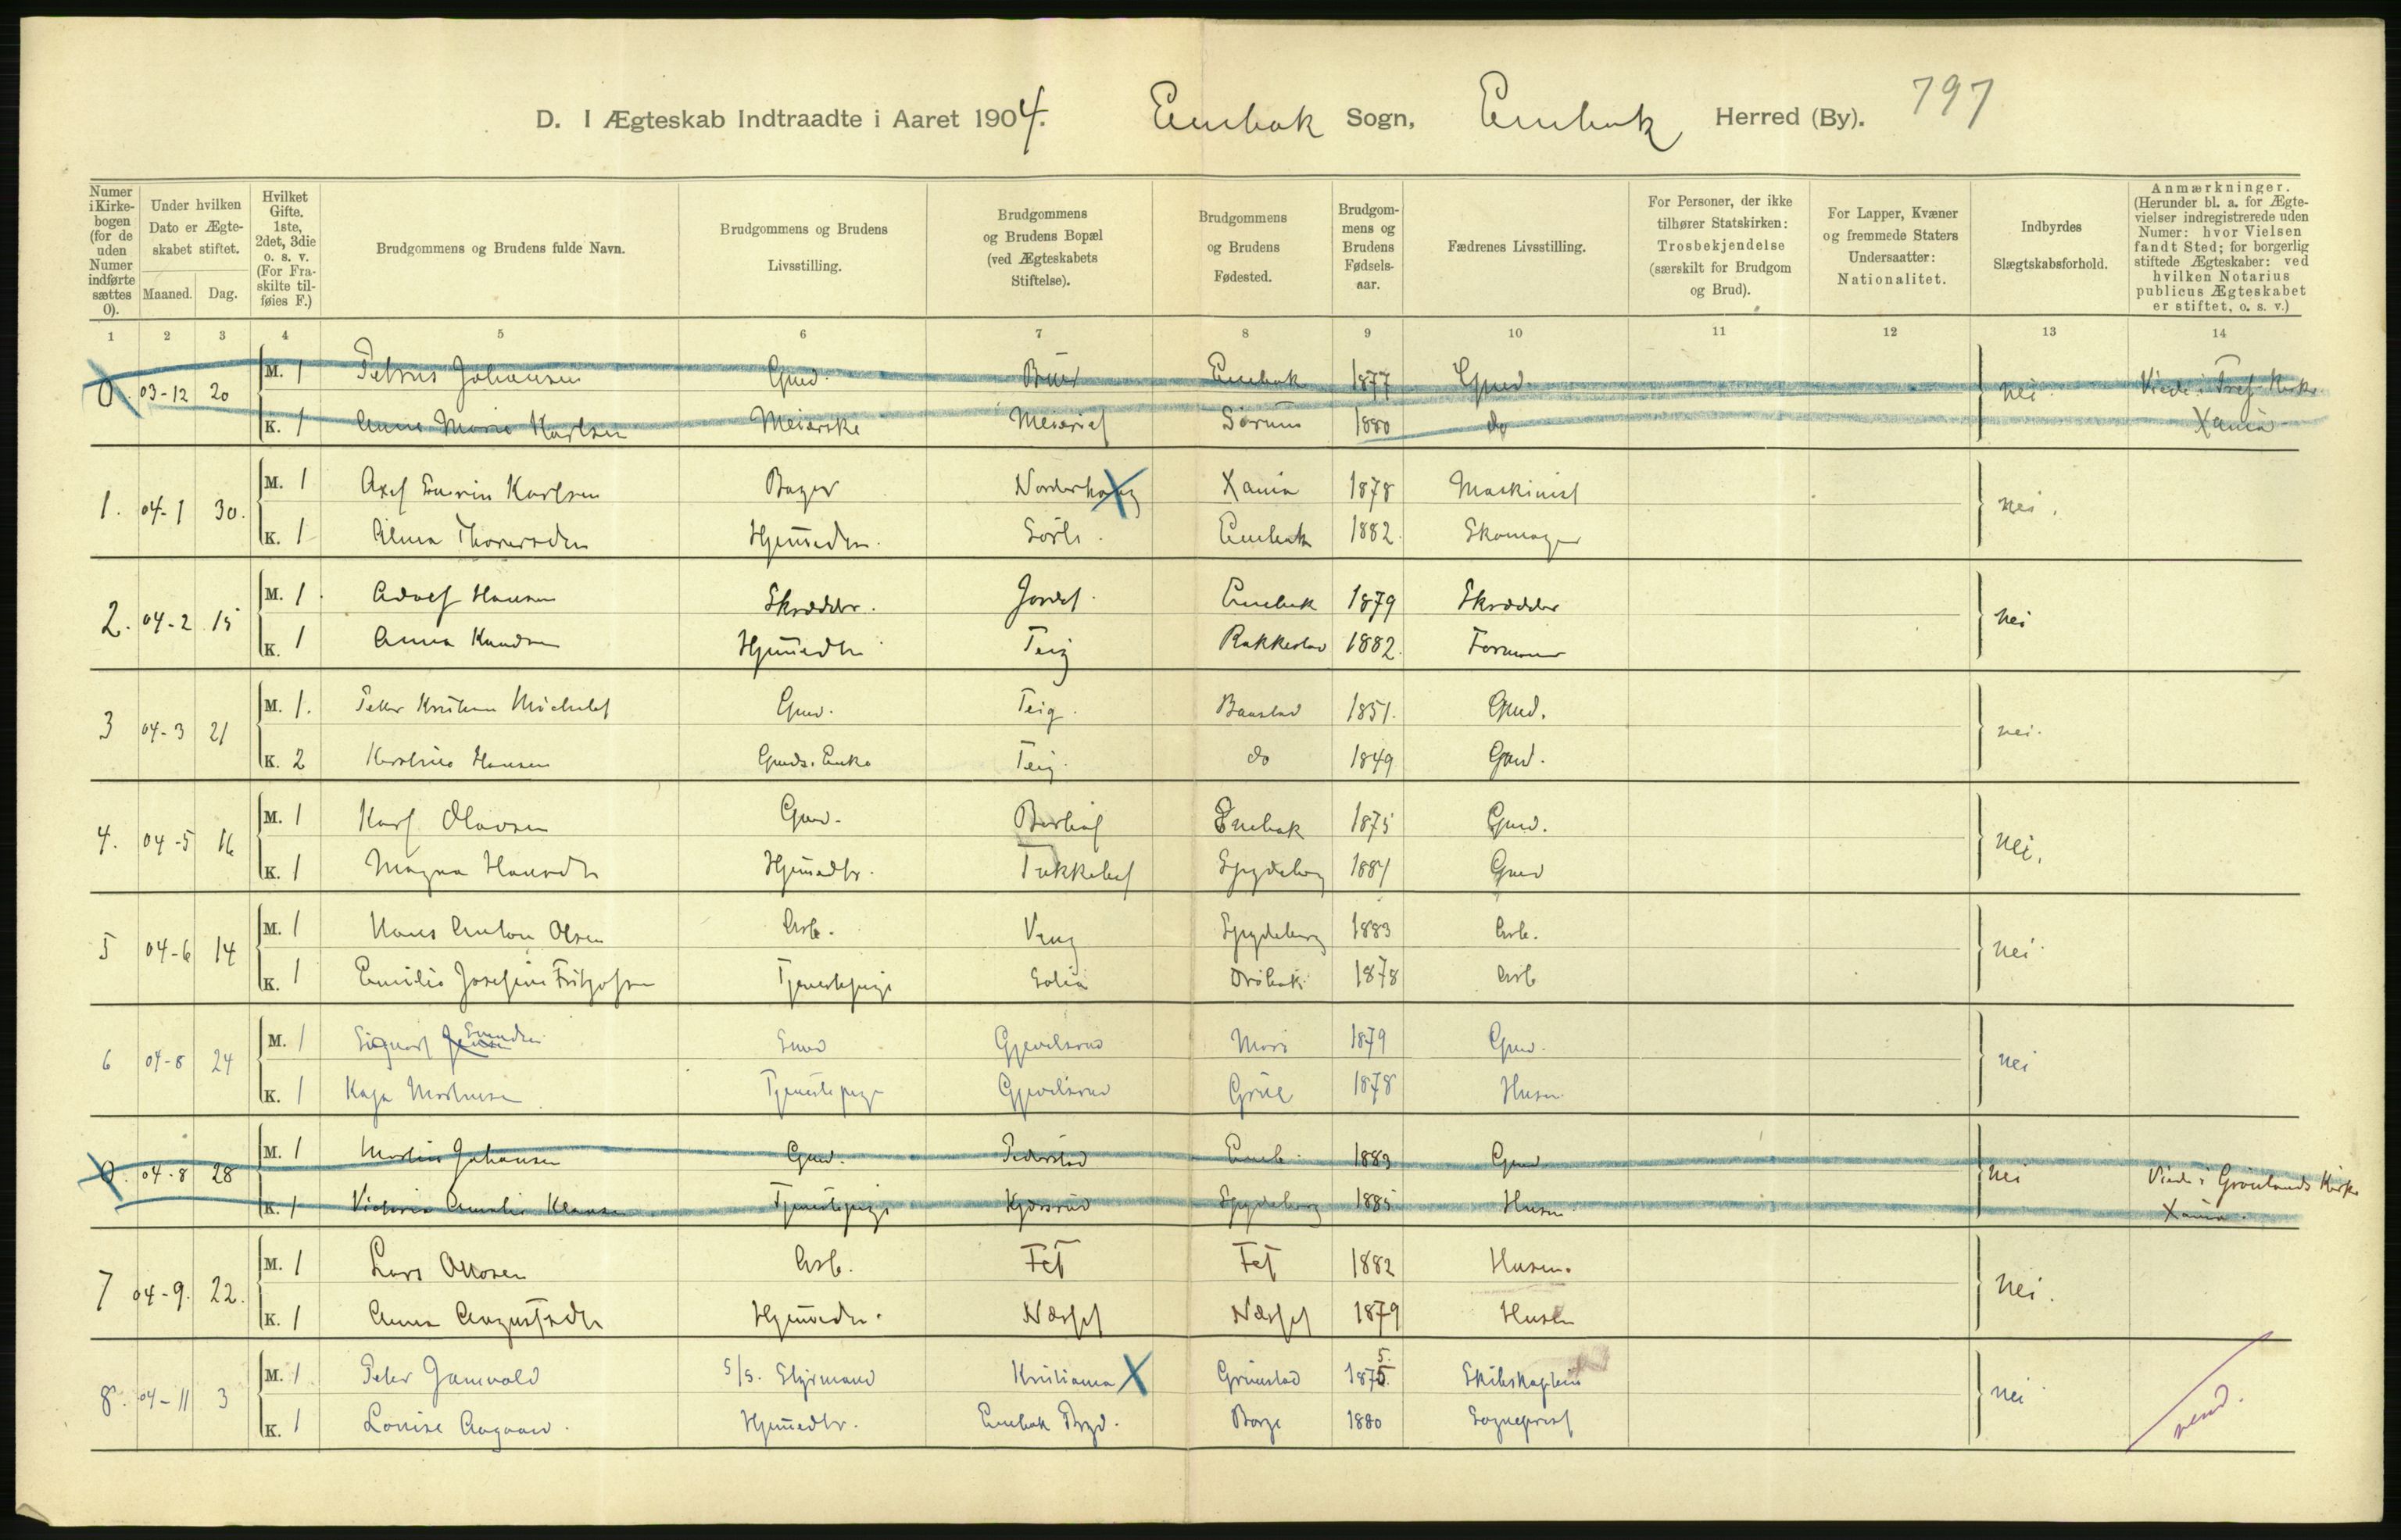 797
D. I Ægteskab Indtraadte i Aaret 1904. Enebak Sogn, Enebak Herred (By).
Numer i Kirkebogen (for de uden Numer indførte sættes 0).
Under hvilken Dato er Ægteskabet stiftet.
Maaned. Dag.
Hvilket Gifte. 1ste, 2det, 3die o. s. v. (For Fraskilte tilføies F.)
Brudgommens og Brudens fulde Navn.
Brudgommens og Brudens Livsstilling.
Brudgommens og Brudens Bopæl (ved Ægteskabets Stiftelse).
Brudgommens og Brudens Fødested.
Brudgommens og Brudens Fødselsaar.
Fædrenes Livsstilling.
For Personer, der ikke tilhører Statskirken: Trosbekjendelse (særskilt for Brudgom og Brud).
For Lapper, Kvæner og fremmede Staters Undersaatter: Nationalitet.
Indbyrdes Slægtskabsforhold.
Anmærkninger. (Herunder bl. a. for Ægtevielser indregistrerede uden Numer: hvor Vielsen fandt Sted; for borgerlig stiftede Ægteskaber: ved hvilken Notarius publicus Ægteskabet er stiftet, o. s. v.)
1 2 3 4 5 6 7 8 9 10 11 12 13 14
0. 03-12 20 M. 1 Petrus Johansen Gmd. Enebak 1877 Gmd. nei. Viede i Tref. Kirke
K. 1 Anne Marie Karlsen Meierske Meieriet Sørum 1880 do Xania
1. 04-1 30. M. 1 Axel Karlsen Bager Norderhaug Xania 1878 Maskinist nei.
K. 1 Alma Thorersdtr Hjemmedtr. Enebak 1882. Skomager
2. 04-2 15 M. 1. Adolf Hansen Skrædder. Jordet. Enebak 1879 Skrædder nei
K. 1 Anna Knudsen Hjemmedtr Teig Rakkestad 1882. Formand
3 04-3 21 M. 1. Peter Kristian Michelet Gmd. Teig. Baastad 1851. Gmd. nei.
K. 2 Hansen Gmds. Enke Teig. do 1849 Gmd.
4. 04-5 16 M. 1 Karl Olavsen Gmd. Enebak 1875 Gmd. nei.
K. 1 Magna Hansdtr Hjemmedtr. Spydeberg 1884 Gmd
5 04-6 14 M. 1 Hans Anton Olsen Arb. Spydeberg 1883 Arb. nei
K. 1 Emilie Josefine Fritjofsen Tjenestepige Drøbak 1878 Arb
6 04-8 24 M. 1 Sigvart Gjevelsrud 1879 Gmd. nei
K. 1 Kaja Tjenestepige Gjevelsrud Grue 1878 Husm.
0. 04-8 28 M. 1 Martin Johansen Gmd. Eneb. 1883 Gmd nei Viede i Grønlands Kirke
K. 1 Victoria Amalie Klausen Tjenestepige Spydeberg 1885 Husm. Xania.
7 04-9. 22. M. 1 Lars Ottosen Arb. Fet Fet 1882 Husm. nei.
K. 1 Anna Augustsdtr Hjemmedtr. Næsset Næsset 1879 Husm
8. 04-11 3 M. 1 Peter Jamvold S/S. Styrmand Kristiania Grimstad 1875. 5. Skibskaptein nei
K. 1 Louise Aagaard. Hjemmedtr. Enebak Borge 1880 Sogneprest